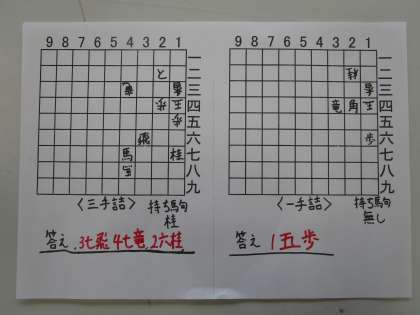 9 8 7 6 5 4 3 2 1
一
と 二
竜 香 三
歩 王 四
歩 五
飛 六
馬 桂 七
八
九
〈三手詰〉 持ち駒
桂
答え、3七飛、4七竜、2六桂
9 8 7 6 5 4 3 2 1
一
桂 二
香 三
竜 角 王 四
五
歩 六
七
八
九
〈一手詰〉 持ち駒
無し
答え 1五歩